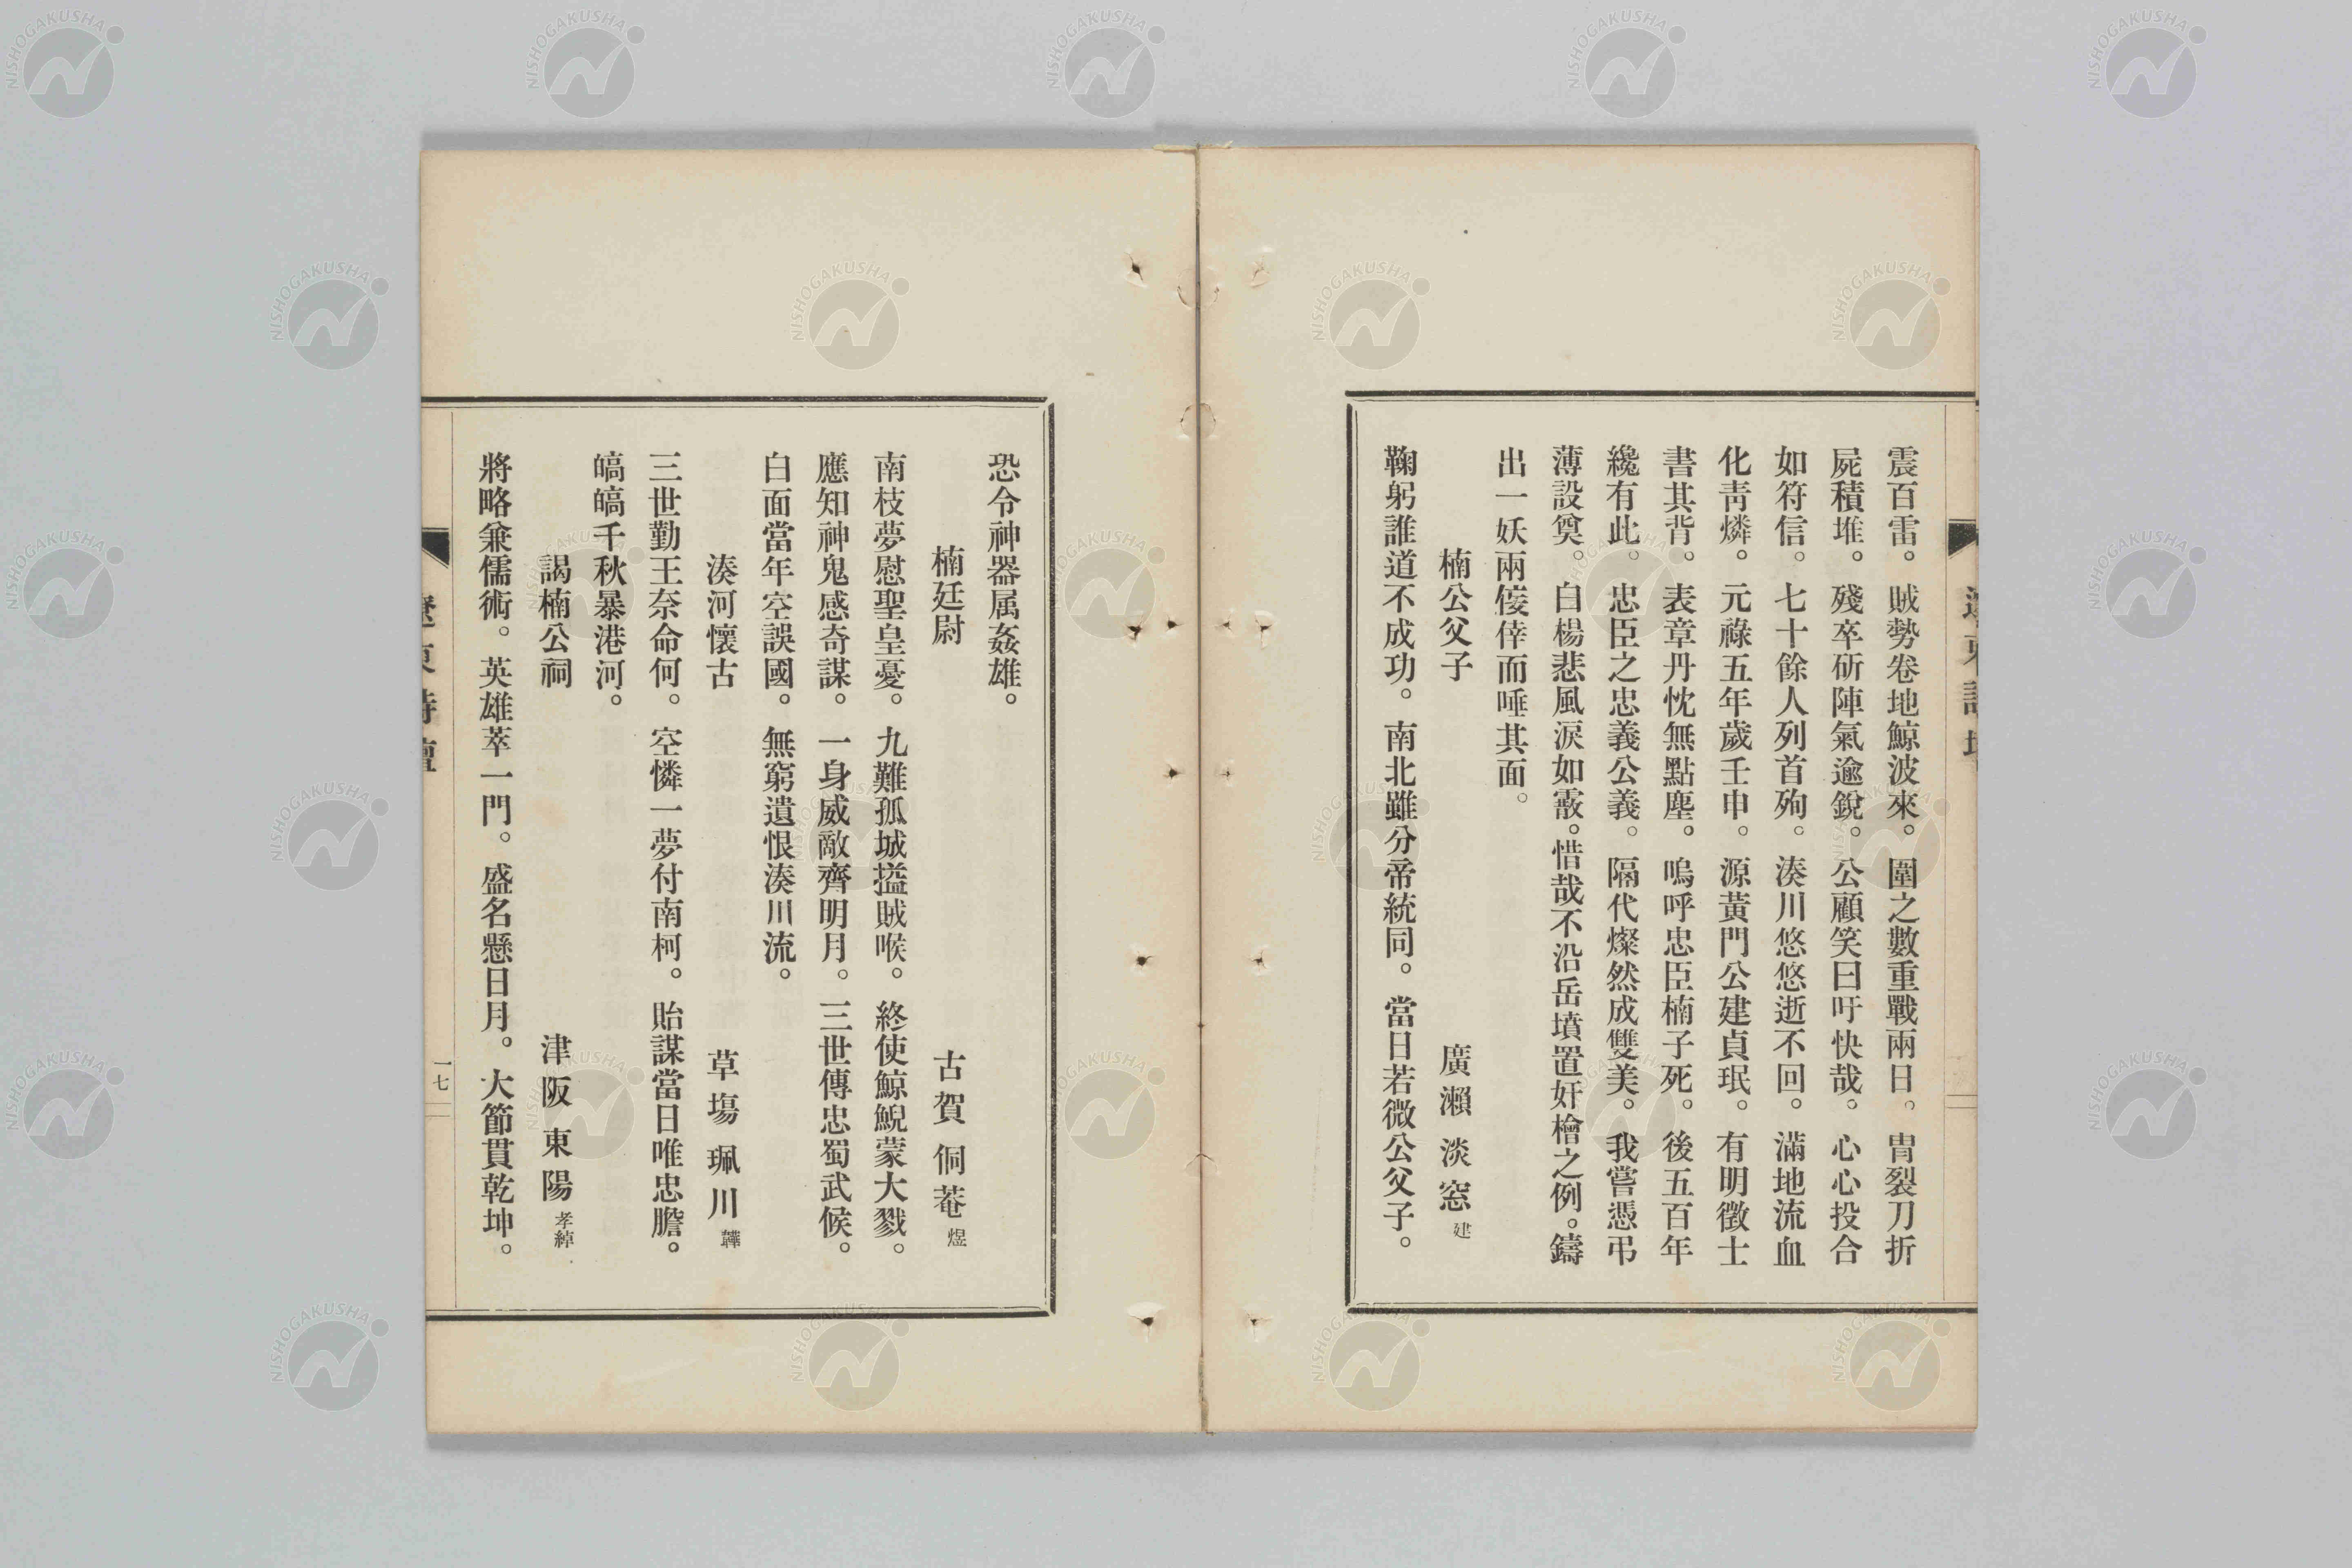 震百雷。賊勢卷地鯨波來。圍之數重戰兩日。冑裂刀折
屍積堆。殘卒斫陣氣逾銳。公顧笑曰吁快哉。心心投合
如符信。七十餘人列首殉。湊川悠悠逝不回。滿地流血
化靑燐。元祿五年歲壬申。源黃門公建貞珉。有明徵士
書其背。表章丹忱無點塵。嗚呼忠臣楠子死。後五百年
纔有此。忠臣之忠義公義。隔代燦然成雙美。我嘗憑弔
薄設奠。白楊悲風淚如霰。惜哉不沿岳墳置奸檜之例。鑄
出一妖兩倰倖而唾其面。
楠公父子 廣瀨淡窓 建
鞠躬誰道不成功。南北雖分帝統同。當日若微公父子。
恐令神器属姦雄。
楠廷尉 古賀侗菴 煜
南枝夢慰聖皇憂。九難孤城搤賊喉。終使鯨鯢蒙大戮。
應知神鬼感奇謀。一身威敵齊明月。三世傳忠蜀武侯。
白面當年空誤國。無窮遺恨湊川流。
湊河懷古 草塲珮川 韡
三世勤王奈命何。空憐一夢付南柯。貽謀當日唯忠膽。
皜皜千秋暴港河。
謁楠公祠 津阪東陽 孝綽
將略兼儒術。英雄萃一門。盛名懸日月。大節貫乾坤。
遼東詩壇
一七
NISHOGAKUSHA